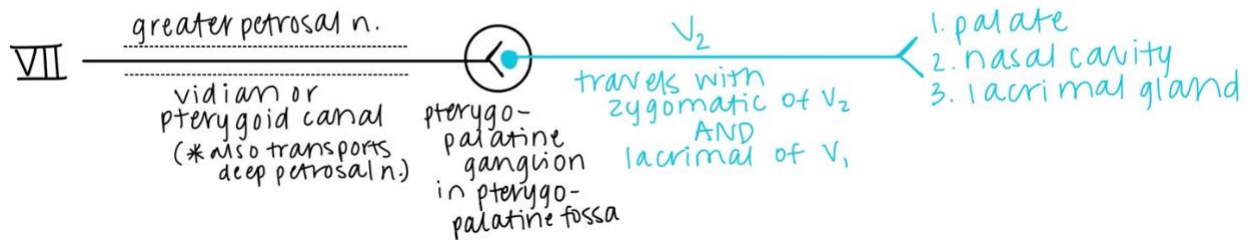 VII
greater petrosal n.
vidian or
pterygoid canal
(*also transports
deep petrosal n.)
pterygo-
palatine
ganglion
in pterygo-
palatine fossa
V₂
travels with
zygomatic of V₂
AND
lacrimal of V₁
1. palate
2. nasal cavity
3. lacrimal gland